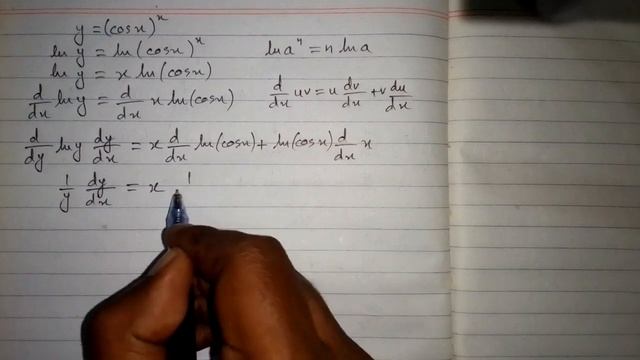 y = (cosx)^x
ln y = ln(cosx)^x    ln a^n = n ln a
ln y = x ln(cosx)
d/dx ln y = d/dx x ln(cosx)    d/dx uv = u dv/dx + v du/dx
d/dy ln y dy/dx = x d/dx ln(cosx) + ln(cosx) d/dx x
1/y dy/dx = x 1